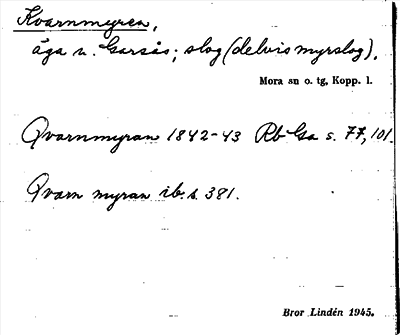 Kvarnmyren,
äga n. Garsås; slog (delvis myrslog).
Mora sn o. tg, Kopp. l.
Qvarnmyran 1842-43 Rb Ga s. 77, 101.
Qvarn myran ib. s. 381.
Bror Lindén 1945.